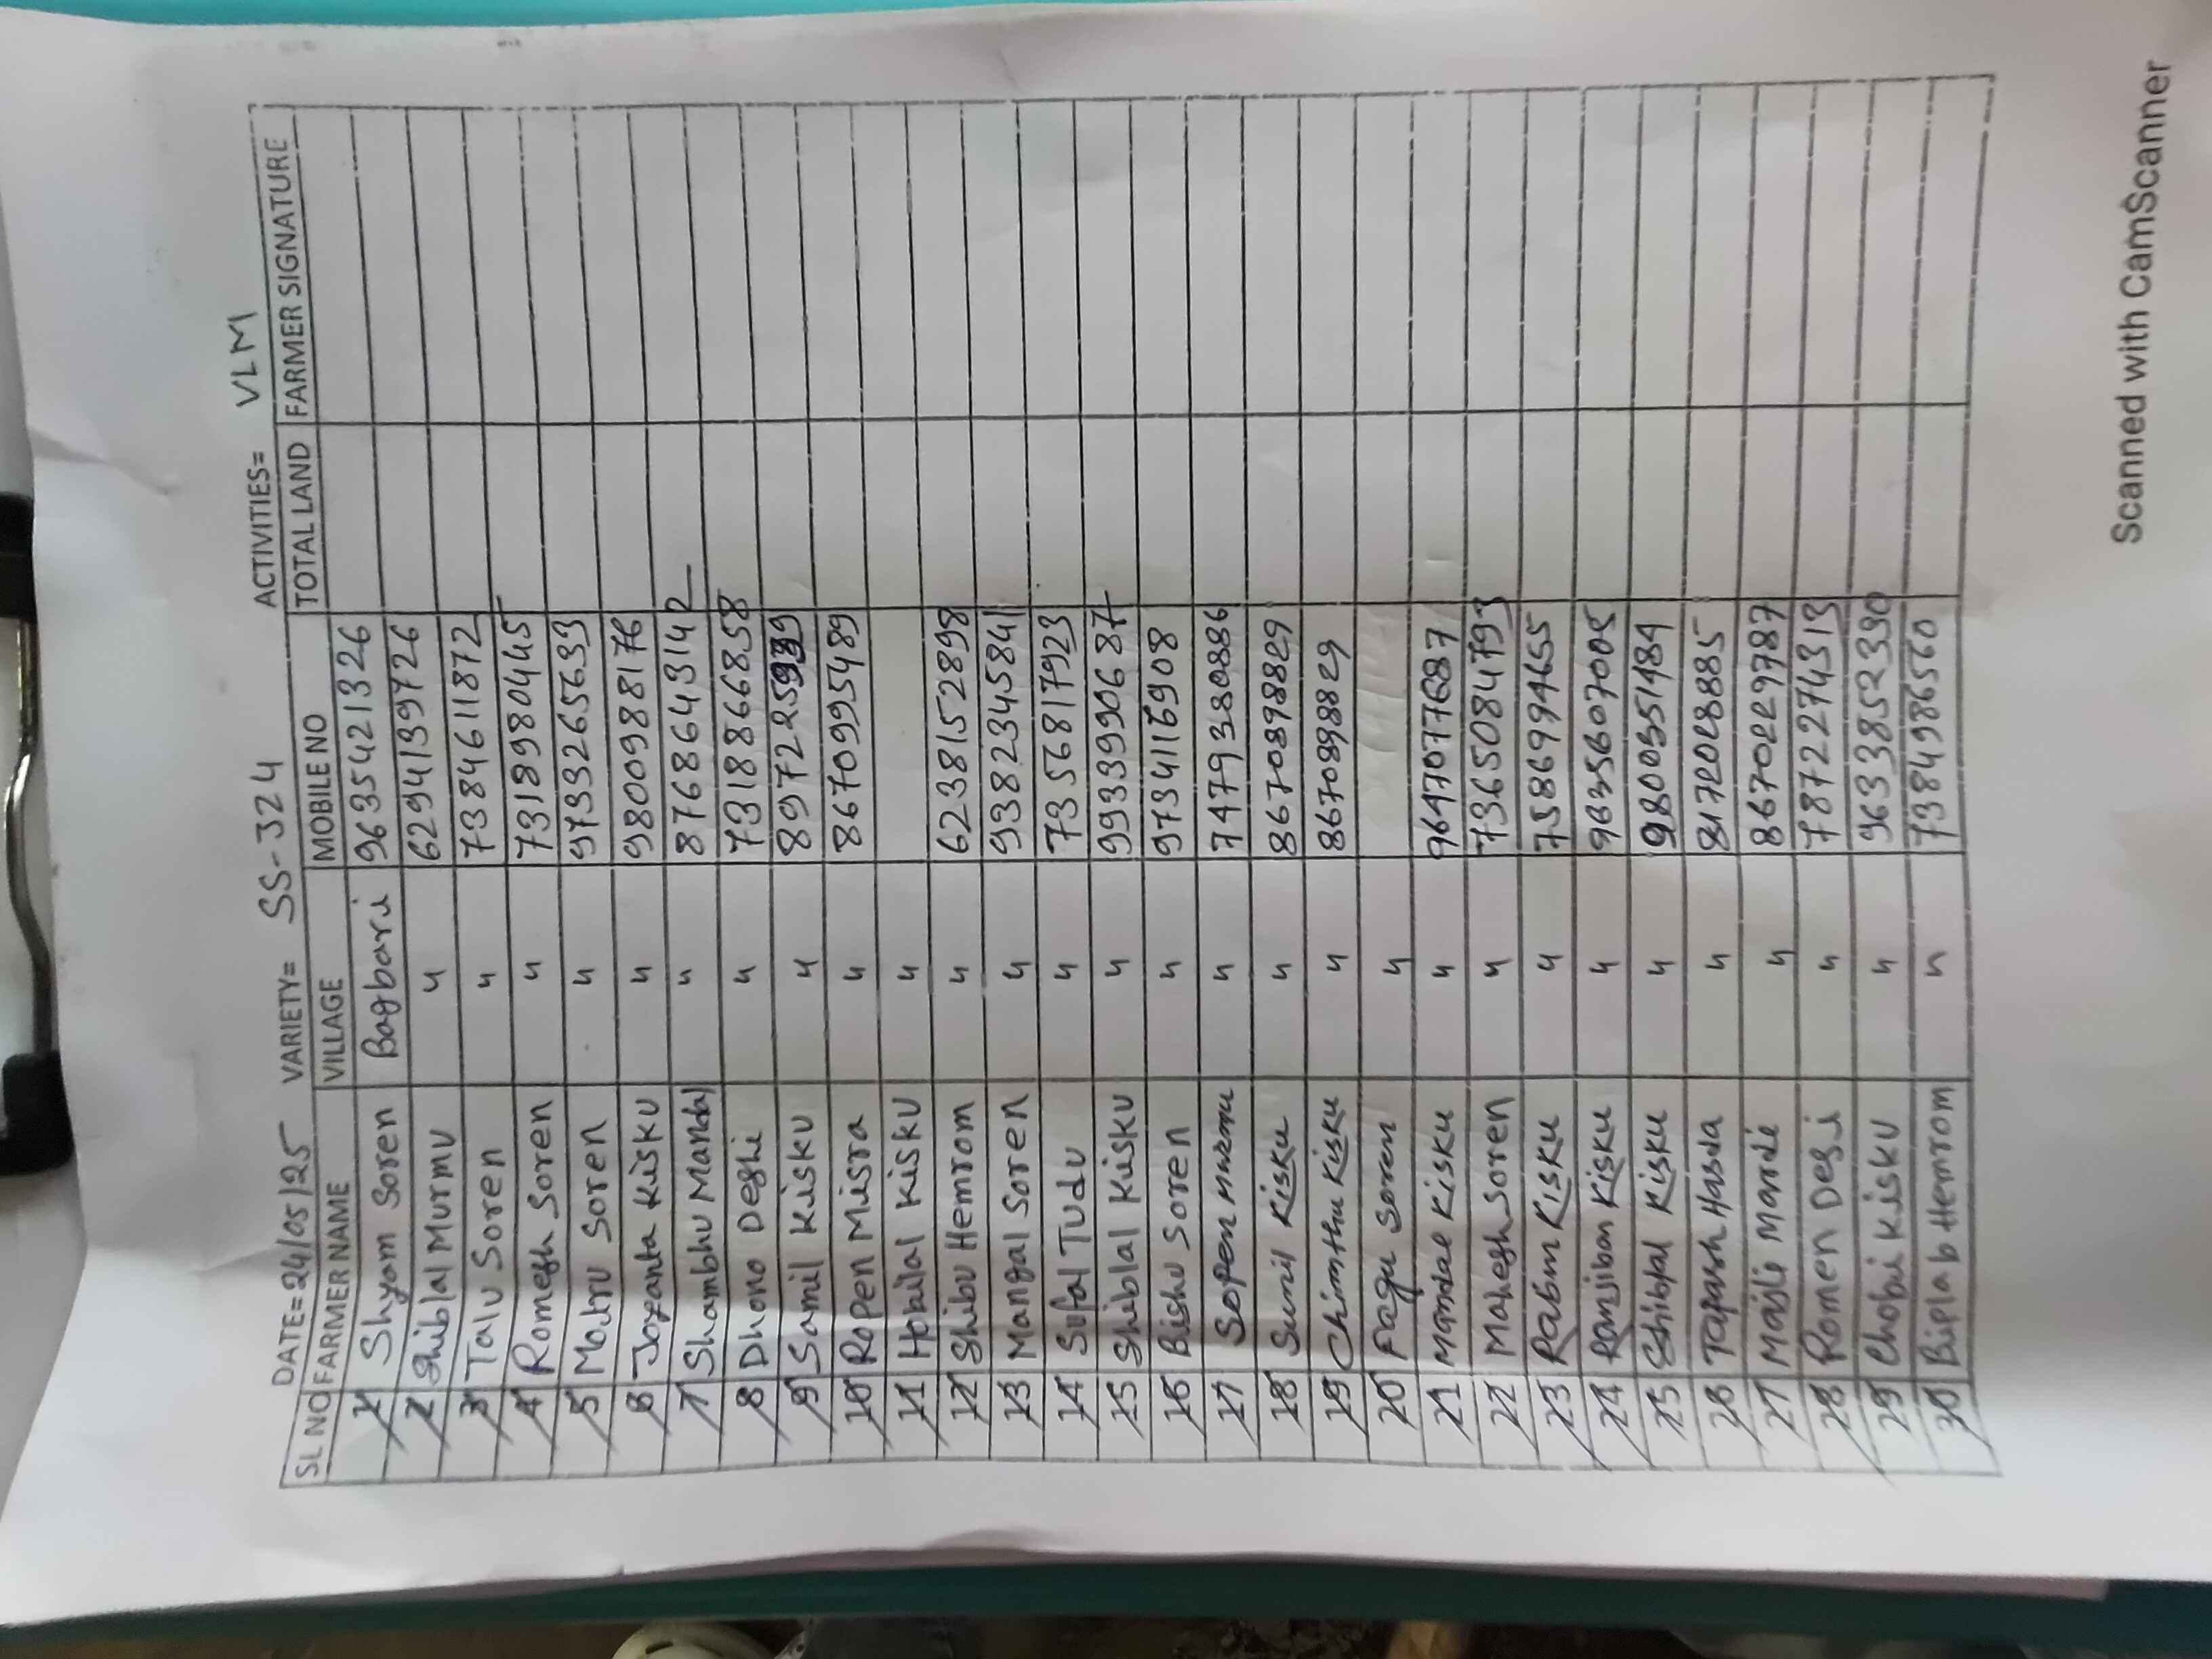 DATE=24/05/25 VARIETY= SS-324 ACTIVITIES= VLM
SL NO FARMER NAME VILLAGE MOBILE NO TOTAL LAND FARMER SIGNATURE
1 Shyam Soren Bagbari 9635421326
2 Shiblal Murmu 4 6294139726
3 Talu Soren 4 7384611872
4 Romesh Soren 4 7318980445
5 Matru Soren 4 9733265633
6 Joyanta Kisku 4 9800988176
7 Shambhu Mandal 4 8768643142
8 Dhono Deshi 4 7318866858
9 Samil Kisku 4
10 Ropen Misra 4 8670995489
11 Hobilal Kisku 4
12 Shibu Hemrom 4 6238152898
13 Mangal Soren 4 9382345841
14 Sufal Tudu 4 7356817923
15 Shiblal Kisku 4 9933990687
16 Bishu Soren 4 9734116908
17 Sopen Murmu 4 7479380886
18 Sumil Kisku 4 8670898829
19 Chimthu Kisku 4 8670898829
20 Fagu Soren 4
21 Mandal Kisku 4 9647077687
22 Mahesh Soren 4 7365084793
23 Rabin Kisku 4 7586994655
24 Ramjiban Kisku 4 9635607005
25 Shibpal Kisku 4 9800351484
26 Tapash Hasda 4 8172028885
27 Majli Mardi 4 8670229787
28 Romen Desi 4 7872274313
29 Chobi Kisku 4 9633852330
30 Biplab Hemrom 4 7384986560
Scanned with CamScanner